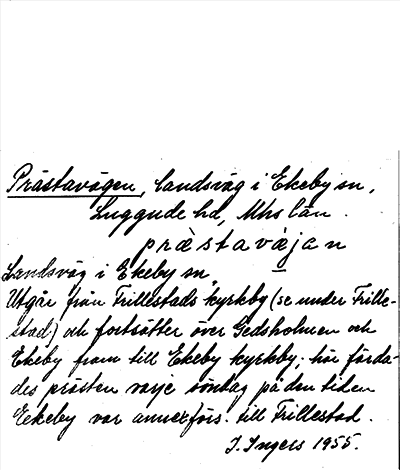 Prästavägen, landsväg i Ekeby sn,
Luggude hd, Mhs län.
præ̀stavæ̀jan
Landsväg i Ekeby sn,
Utgår från Frillestads kyrkby (se under Frille-
stad) och fortsätter över Gedsholmen och
Ekeby fram till Ekeby kyrkby; här färda-
des prästen varje söndag på den tiden
Eekeby var annexförs. till Frillestad.
I. Ingers 1955.